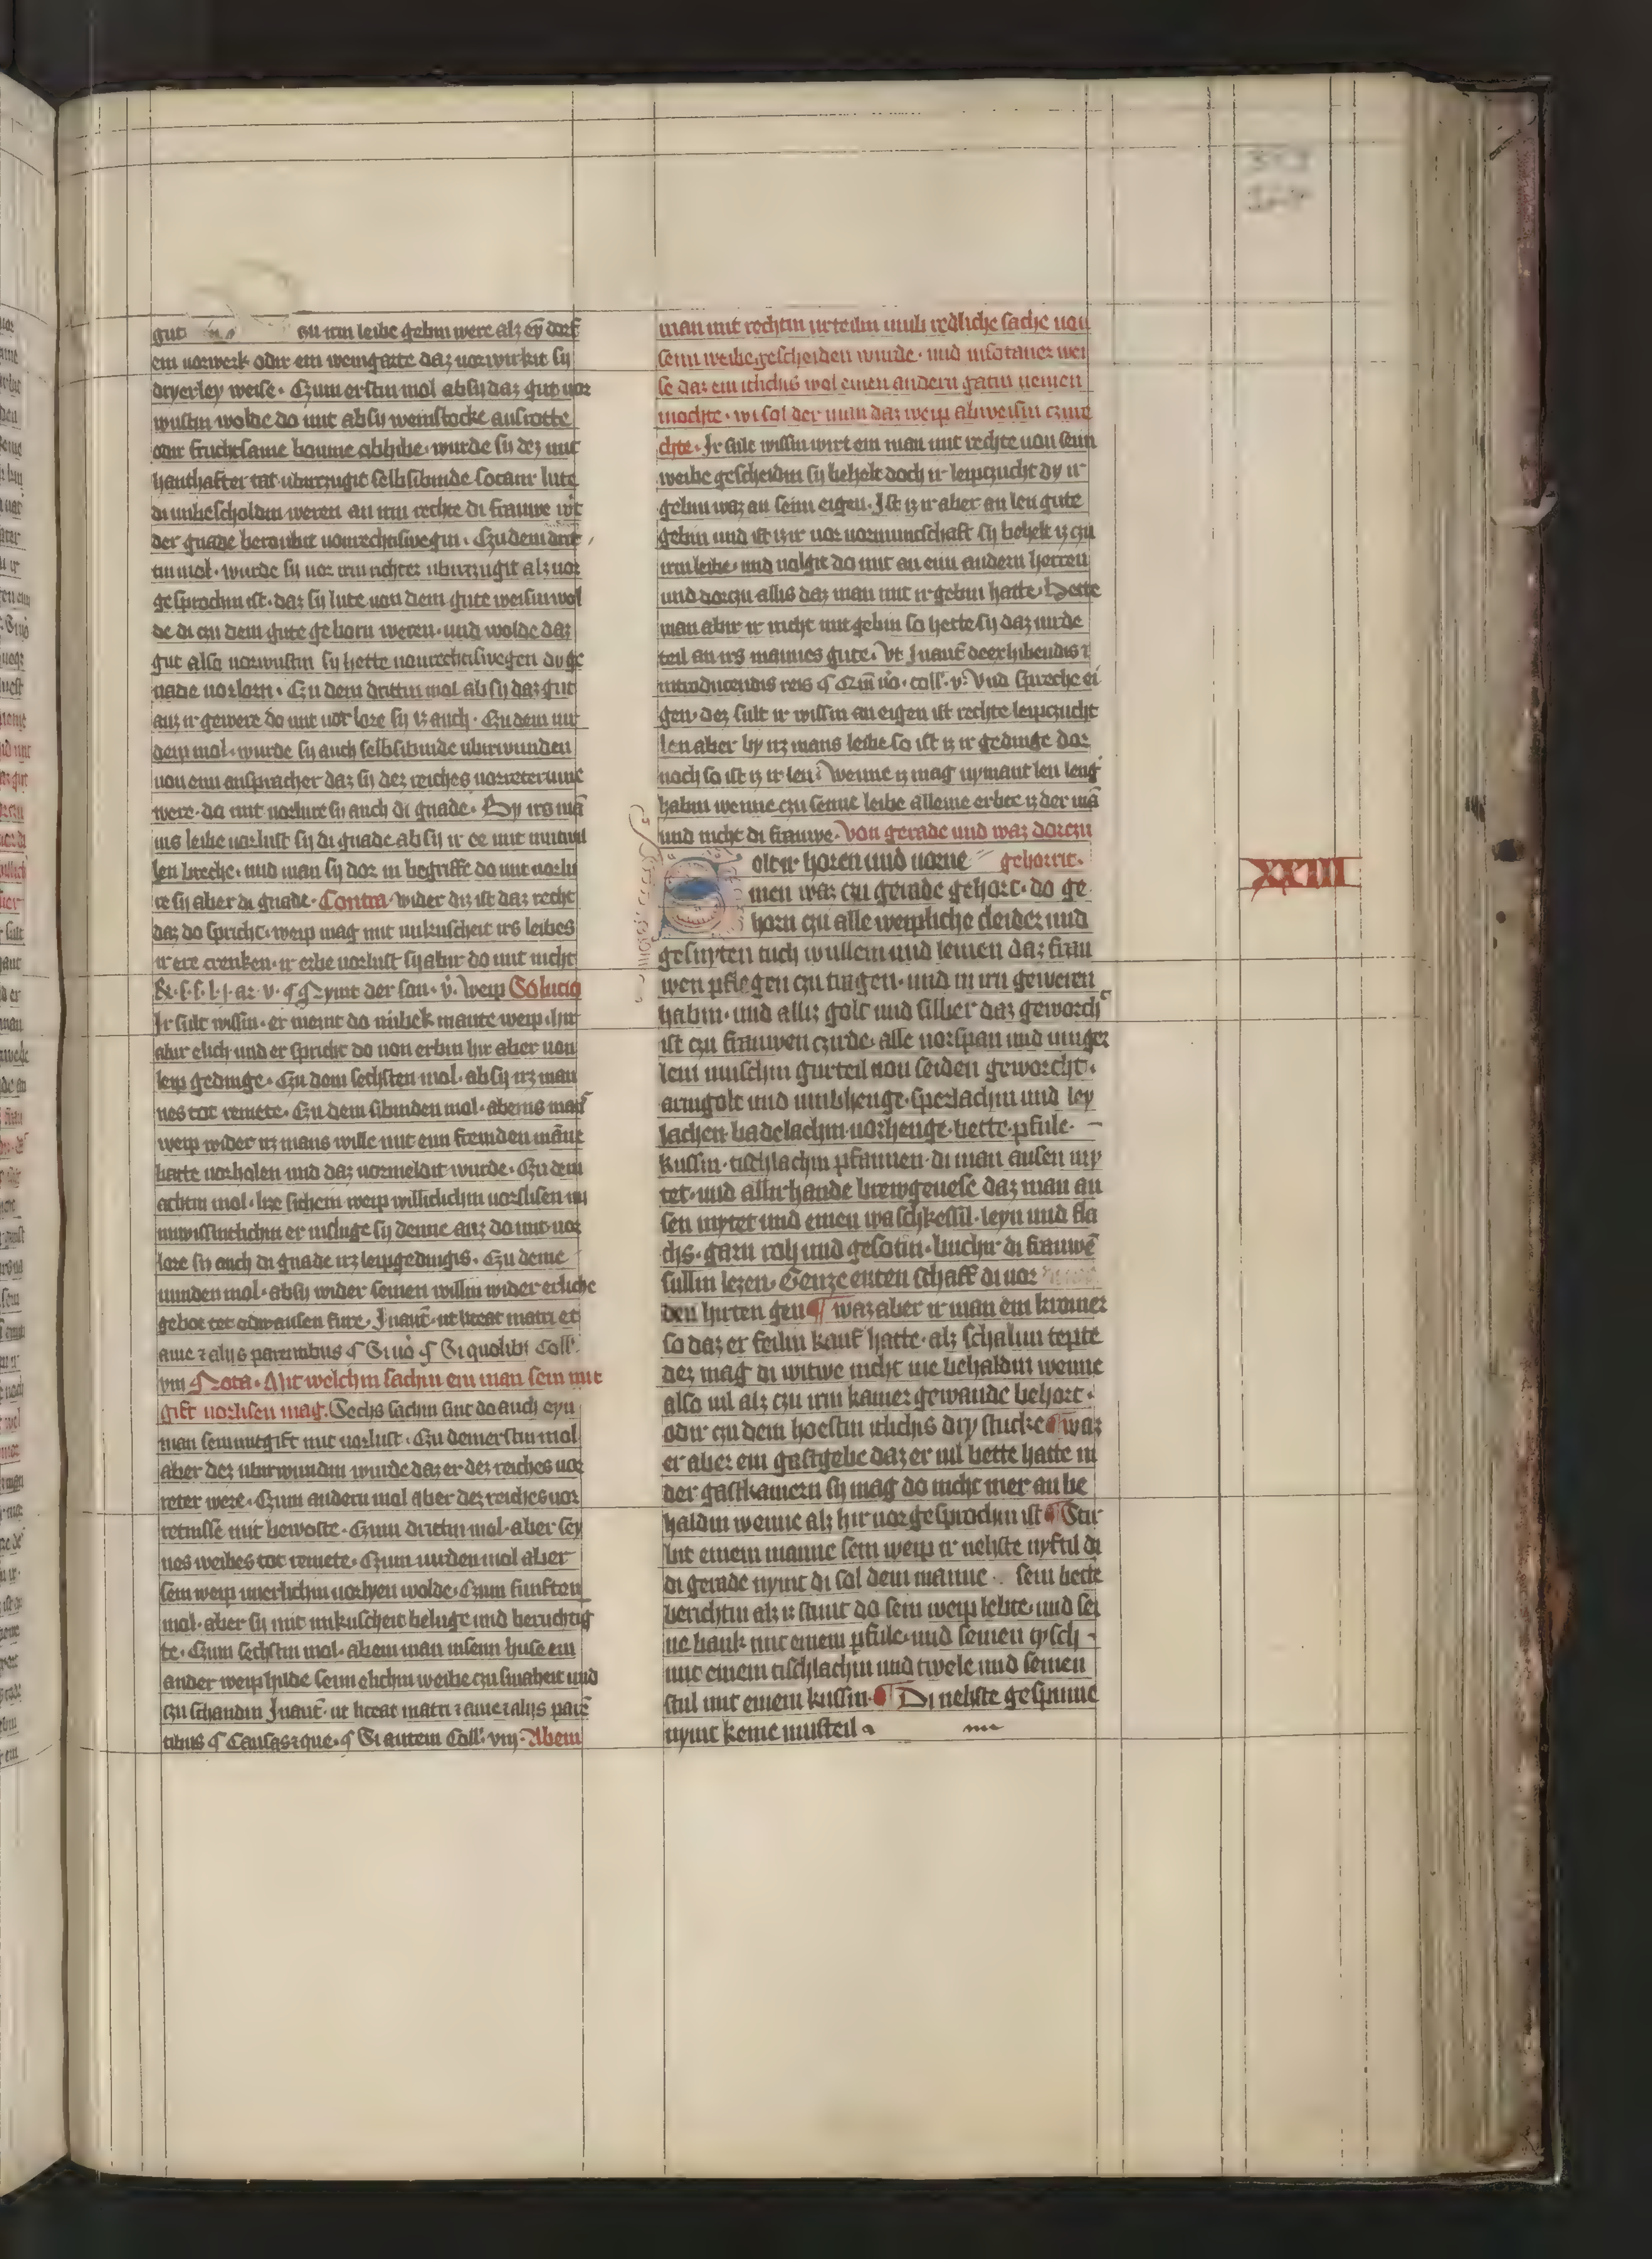 gut czu irm leibe gebin were alz ey dorf
ein vorwerk odir ein weingarte daz vorwirkit sy
dryerley weise. Czum erstin mol ab sy daz gut vor
wustin wolde do mit ab sy weinstocke ausrotte
odir fruchtsame boume abhibe. wurde sy dez mit
hanthafter tat ubirczugit selbsibinde sotanir lute
di unbescholdin weren an irm rechte di frauwe wirt
der gnade beroubit von rechtis wegin. Czu dem andir
tin mol. wurde sy vor irm richter ubirczugit alz vor
gesprochin ist. daz sy lute von dem gute weisin wol
de di czu dem gute geborn weren. und wolde daz
gut also vorwustin sy hette von rechtis wegen dy ge
nade vorlorn. Czu dem drittin mol ab sy daz gut
auz ir gewere do mit vorlore sy iz auch. Czu dem vir
dem mol. wurde sy auch selbsibinde ubirwunden
von eim ansprecher daz sy dez reiches vorreterinne
were. do mit vorlure sy auch di gnade. By irs man
nis leibe vorlust sy di gnade ab sy ir ee mit mutwil
len breche. und man sy dor in begriffe do mit vorlu
re sy aber di gnade. Contra. wider diz ist daz recht
daz do spricht. weip mag mit unkuscheit irs leibes
ir ere crenken. ir erbe vorlust sy abir do mit nicht
weip Solucio
Ir sult wissin. er meint do unbekmante weip. hir
abir elich und er spricht do von erbin hir aber von
leip gedinge. Czu dem sechsten mol. ab sy irz man
nes tot remete. Czu dem sibinden mol. ab eins mans
weip wider irz mans wille mit eim fremden manne
hatte vorholen und daz vormeldit wurde. Czu dem
achtin mol. lize sich ein weip williclichin vorslifen
unwissintlichin er insluge sy denne auz do mit vor
lore sy auch di gnade irz leipgedingis. Czu deme
nunden mol. ab sy wider seinen willin wider erliche
gebot tot odir ausen fure. In aut. ut liceat matri et
avie z alijs parentibus ¶ Si vo ¶ Si quolibz Coll.
viij Nota. Mit welchin sachin ein man sein mit
gift vorlisen mag. Sechs sachin sint do auch eyn
man sein mitgift mit vorlust. Czu dem erstin mol
aber dez ubirwundin wurde daz er dez reiches vor
reter were. Czum andern mol aber dez reiches vor
retnisse mit bewoste. Czum drittin mol. aber sey
nes weibes tot remete. Czum virden mol aber
sein weip unerlichin vorlyen wolde. Czum funften
mol. aber sy mit unkuscheit beluge und beruchtig
te. Czum sechstin mol. ab ein man in seim huse ein
ander weip hilde seim elichin weibe czu smaheit und
czu schandin In aut. ut liceat matri z avie z alijs paren
tibus ¶ Causas zque. ¶ Si autem Coll. viij. Ab ein
man mit rechtin urteiln umb redliche sache von
seim weibe gescheiden wurde. und in sotaner wei
se daz ein itlichis wol einen andern gatin nemen
mochte. wi sol der man daz weip abweisin czuue
chte. Ir sult wissin wirt ein man mit rechte von seim
weibe gescheidin sy behelt doch ir leipczucht dy ir
gebin waz an seim eigen. Ist iz ir aber an len gute
gebin und ist iz ir vor vormuntschaft sy behelt iz czu
irm leibe. und volgit do mit an ein andern herren
und dorczu allis daz man mit ir gebin hatte. Hette
man abir ir nicht mit gebin so hette sy daz virde
teil an irs mannes gute. Ut In aut de exhibendis z
introducendis reis coll. v. Und spreche ei
gen. dez sult ir wissin an eigen ist rechte leipczucht
len aber by irz mans leibe so ist iz ir gedinge dor
noch so ist iz ir len. Wenne iz mag nymant len leng
habin wenne czu seime leibe alleine erbet iz der man
und nicht di frauwe. Von gerade und waz dorczu
gehorit.
Solt ir horen und vorne
men waz czu gerade gehort. do ge
horn czu alle weipliche cleider und
gesnyten tuch wullein und leinen daz frau
wen pflegen czu tragen. und in irn geweren
habin. und alliz golt und silber daz geworcht
ist czu frauwen czirde. alle vorspan und vinger
lein unischin gurteil von seiden geworcht.
armgolt und umbhenge. sperlachin und ley
lachen. badelachin. vorhenge. bette. pfule.
kussin. tischlachin pfannen. di man ausen my
tet. und allirhande brewgevese daz man au
sen mytet und einen waschkessil. leyn und fla
chs. garn roh und gesotin. buchir di frauwen
sullin lezen. Genze enten schaff di vor
den hirten gen ¶ waz aber ir man ein kromer
so daz er feiln kauf hatte. alz schalun tepte
dez mag di witwe nicht me behaldin wenne
also vil alz czu irm kamer gewande behort.
odir czu dem hoestin itlichis dry stucke ¶ waz
er aber ein gastgebe daz er vil bette hatte in
der gastkamern sy mag do nicht mer an be
haldin wenne alz hir vor gesprochin ist ¶ Stir
bit einem manne sein weip ir nehste nyftil di
di gerade nymt di sol dem manne sein bette
berichtin alz iz stunt do sein weip lebte. und sei
ne bank mit einem pfule. und seinen tysch
mit einem tischlachin und twele und seinen
stul mit einem kussin. ¶ Di nehste gespinne
nymt keine musteil
XXIII